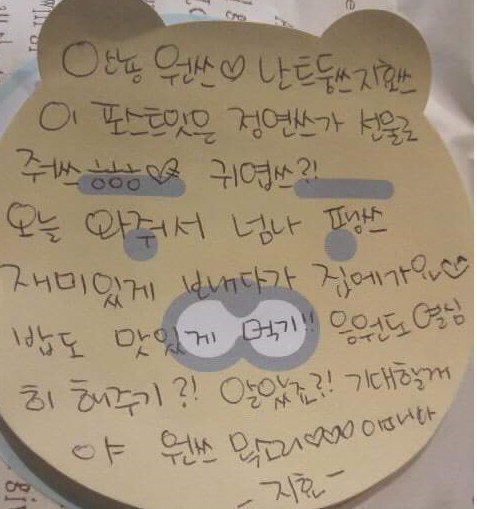 안뇽 원쓰♡ 난트둥쓰지효쓰
이 포스트잇은 정연쓰가 선물로
줘쓰 ㅎㅎㅎ♡ 귀엽쓰?!
오늘 와줘서 넘나
재미있게 보내다가 집에가요♡
밥도 맛있게 먹기!! 응원도 열심
히 해주기?! 알았죠?! 기대할게
야 원쓰 ♡♡♡
-지효-